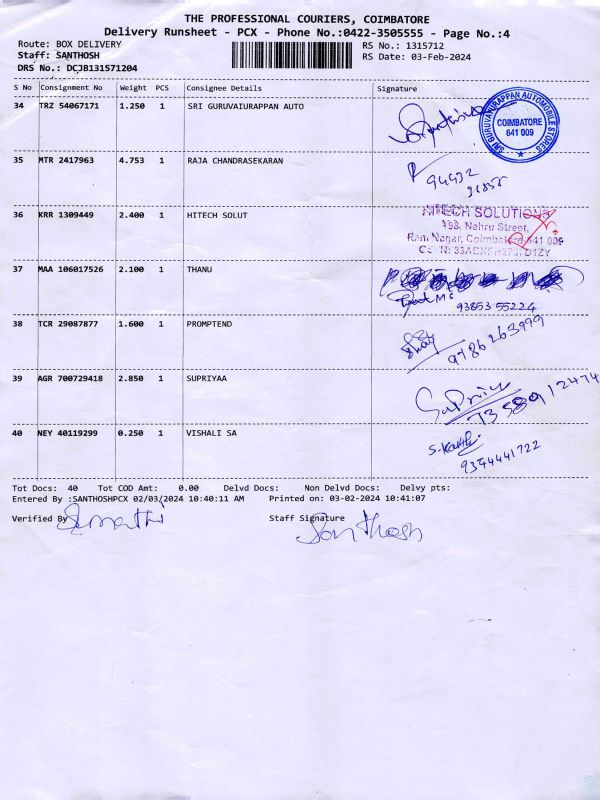 THE PROFESSIONAL COURIERS, COIMBATORE
Delivery Runsheet - PCX - Phone No.:0422-3505555 - Page No.:4
Route: BOX DELIVERY
RS No.: 1315712
Staff: SANTHOSH
RS Date: 03-Feb-2024
DRS No.: DCJB131571204
S No Consignment No Weight PCS Consignee Details Signature
34 TRZ 54067171 1.250 1 SRI GURUVAIURAPPAN AUTO
SRI GURUVAIURAPPAN AUTOMOBILE STORES
COIMBATORE
641 009
35 MTR 2417963 4.753 1 RAJA CHANDRASEKARAN
94432
36 KRR 1309449 2.400 1 HITECH SOLUT
HITECH SOLUTIONS
198, Nehru Street,
Ram Nagar, Coimbatore 641 009
37 MAA 106017526 2.100 1 THANU
93853 55224
38 TCR 29087877 1.600 1 PROMPTEND
9786263979
39 AGR 700729418 2.850 1 SUPRIYAA
Supriya
7358912474
40 NEY 40119299 0.250 1 VISHALI SA
9344441722
Tot Docs: 40 Tot COD Amt: 0.00 Delvd Docs: Non Delvd Docs: Delvy pts:
Entered By :SANTHOSHPCX 02/03/2024 10:40:11 AM Printed on: 03-02-2024 10:41:07
Verified By
Staff Signature
Santhosh